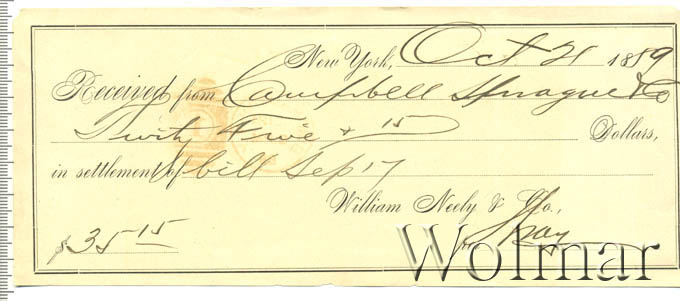 New York, Oct 21 1889
Received from Campbell Sprague & Co
Five & 15 Dollars,
in settlement of bill Sep 17
William Neely & Co.,
$35 15
Wolmar